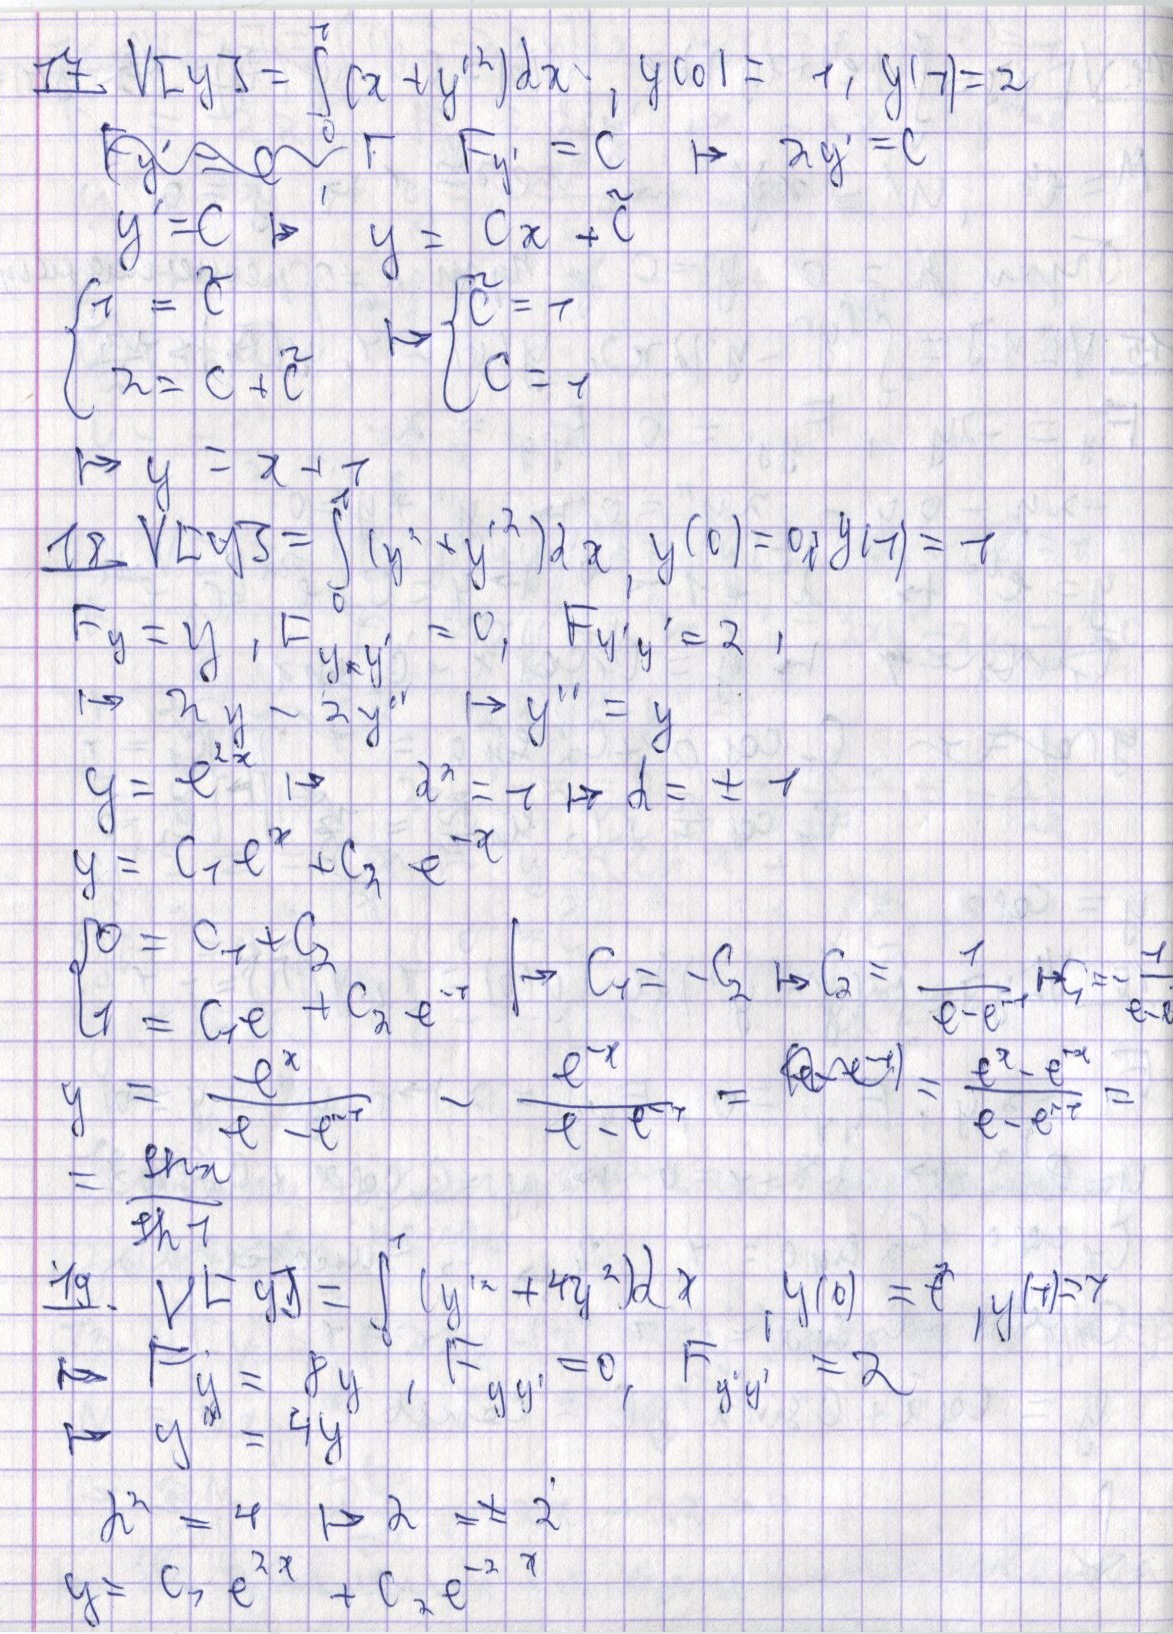 17. V[y] = ∫₀¹ (x + y'²) dx, y(0) = 1, y(1) = 2
F_y' = C ↦ 2y' = C
y' = C ↦ y = Cx + C̃
{ 1 = C̃ ↦ { C̃ = 1
2 = C + C̃ C = 1
↦ y = x + 1
18. V[y] = ∫₀¹ (y² + y'²) dx, y(0) = 0, y(1) = 1
F_y = y, F_yy' = 0, F_y'y' = 2,
↦ 2y - 2y'' ↦ y'' = y
y = e^{λx} ↦ λ² = 1 ↦ λ = ± 1
y = C₁e^x + C₂ e^{-x}
{ 0 = C₁ + C₂
1 = C₁e + C₂e^{-1} | ↦ C₁ = -C₂ ↦ C₂ = 1/(e-e^{-1}) ↦ C₁ = -1/(e-e
y = e^x/(e-e^{-1}) - e^{-x}/(e-e^{-1}) = = (e^x-e^{-x})/(e-e^{-1}) =
= sh x/sh 1
19. V[y] = ∫₀¹ (y'² + 4y²) dx, y(0) = e², y(1) = 1
↦ F_y = 8y, F_yy' = 0, F_y'y' = 2
↦ y'' = 4y
λ² = 4 ↦ λ = ± 2
y = C₁e^{2x} + C₂e^{-2x}